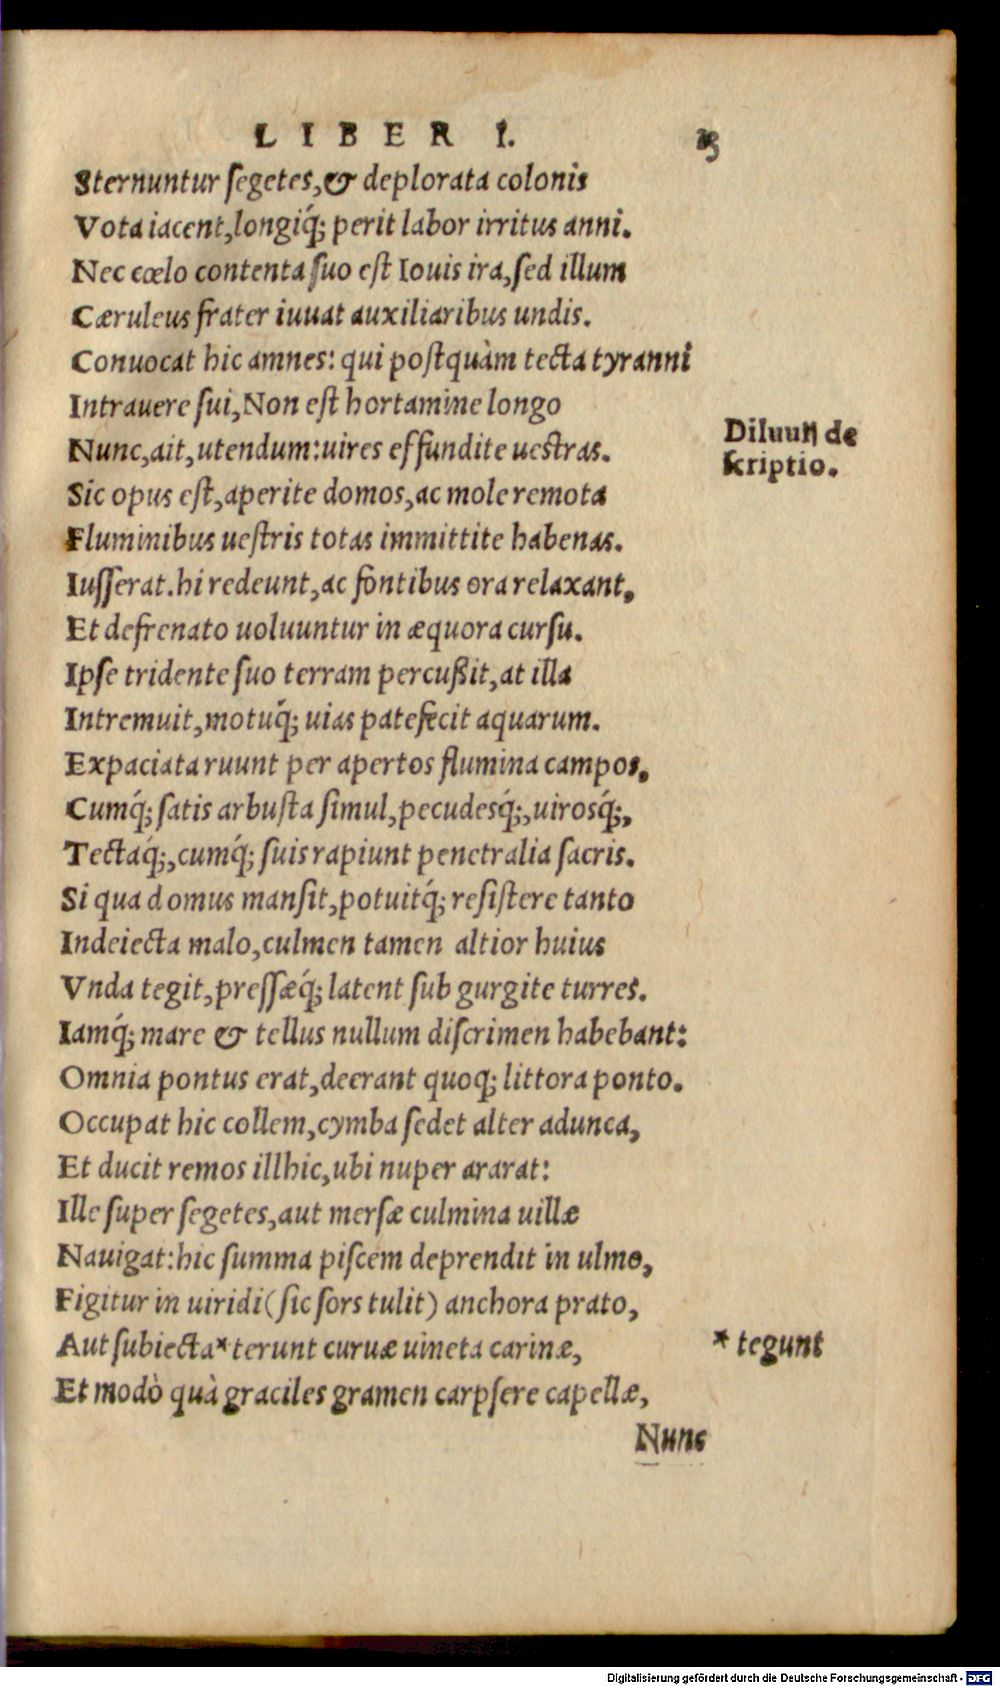 LIBER I.
Sternuntur ſegetes,& deplorata colonis
Vota iacent,longiq́; perit labor irritus anni.
Nec cœlo contenta ſuo eſt Iouis ira,ſed illum
Cæruleus frater iuuat auxiliaribus undis.
Conuocat hic amnes: qui poſtquàm tecta tyranni
Intrauere ſui,Non eſt hortamine longo
Nunc,ait,utendum:uires effundite ueſtras.
Diluuij de
ſcriptio.
Sic opus eſt,aperite domos,ac mole remota
Fluminibus ueſtris totas immittite habenas.
Iuſſerat.hi redeunt,ac fontibus ora relaxant,
Et defrenato uoluuntur in æquora curſu.
Ipſe tridente ſuo terram percußit,at illa
Intremuit,motuq́; uias patefecit aquarum.
Expaciata ruunt per apertos flumina campos,
Cumq́; ſatis arbuſta ſimul,pecudesq́;,uirosq́;,
Tectaq́;,cumq́; ſuis rapiunt penetralia ſacris.
Si qua domus manſit,potuitq́; reſiſtere tanto
Indeiecta malo,culmen tamen altior huius
Vnda tegit,preſſæq́; latent ſub gurgite turres.
Iamq́; mare & tellus nullum diſcrimen habebant:
Omnia pontus erat,deerant quoq; littora ponto.
Occupat hic collem,cymba ſedet alter adunca,
Et ducit remos illhic,ubi nuper ararat:
Ille ſuper ſegetes,aut merſæ culmina uillæ
Nauigat:hic ſumma piſcem deprendit in ulmo,
Figitur in uiridi(ſic ſors tulit) anchora prato,
Aut ſubiecta*terunt curuæ uineta carinæ,
* tegunt
Et modò quà graciles gramen carpſere capellæ,
Nunc
Digitalisierung gefördert durch die Deutsche Forschungsgemeinschaft - DFG